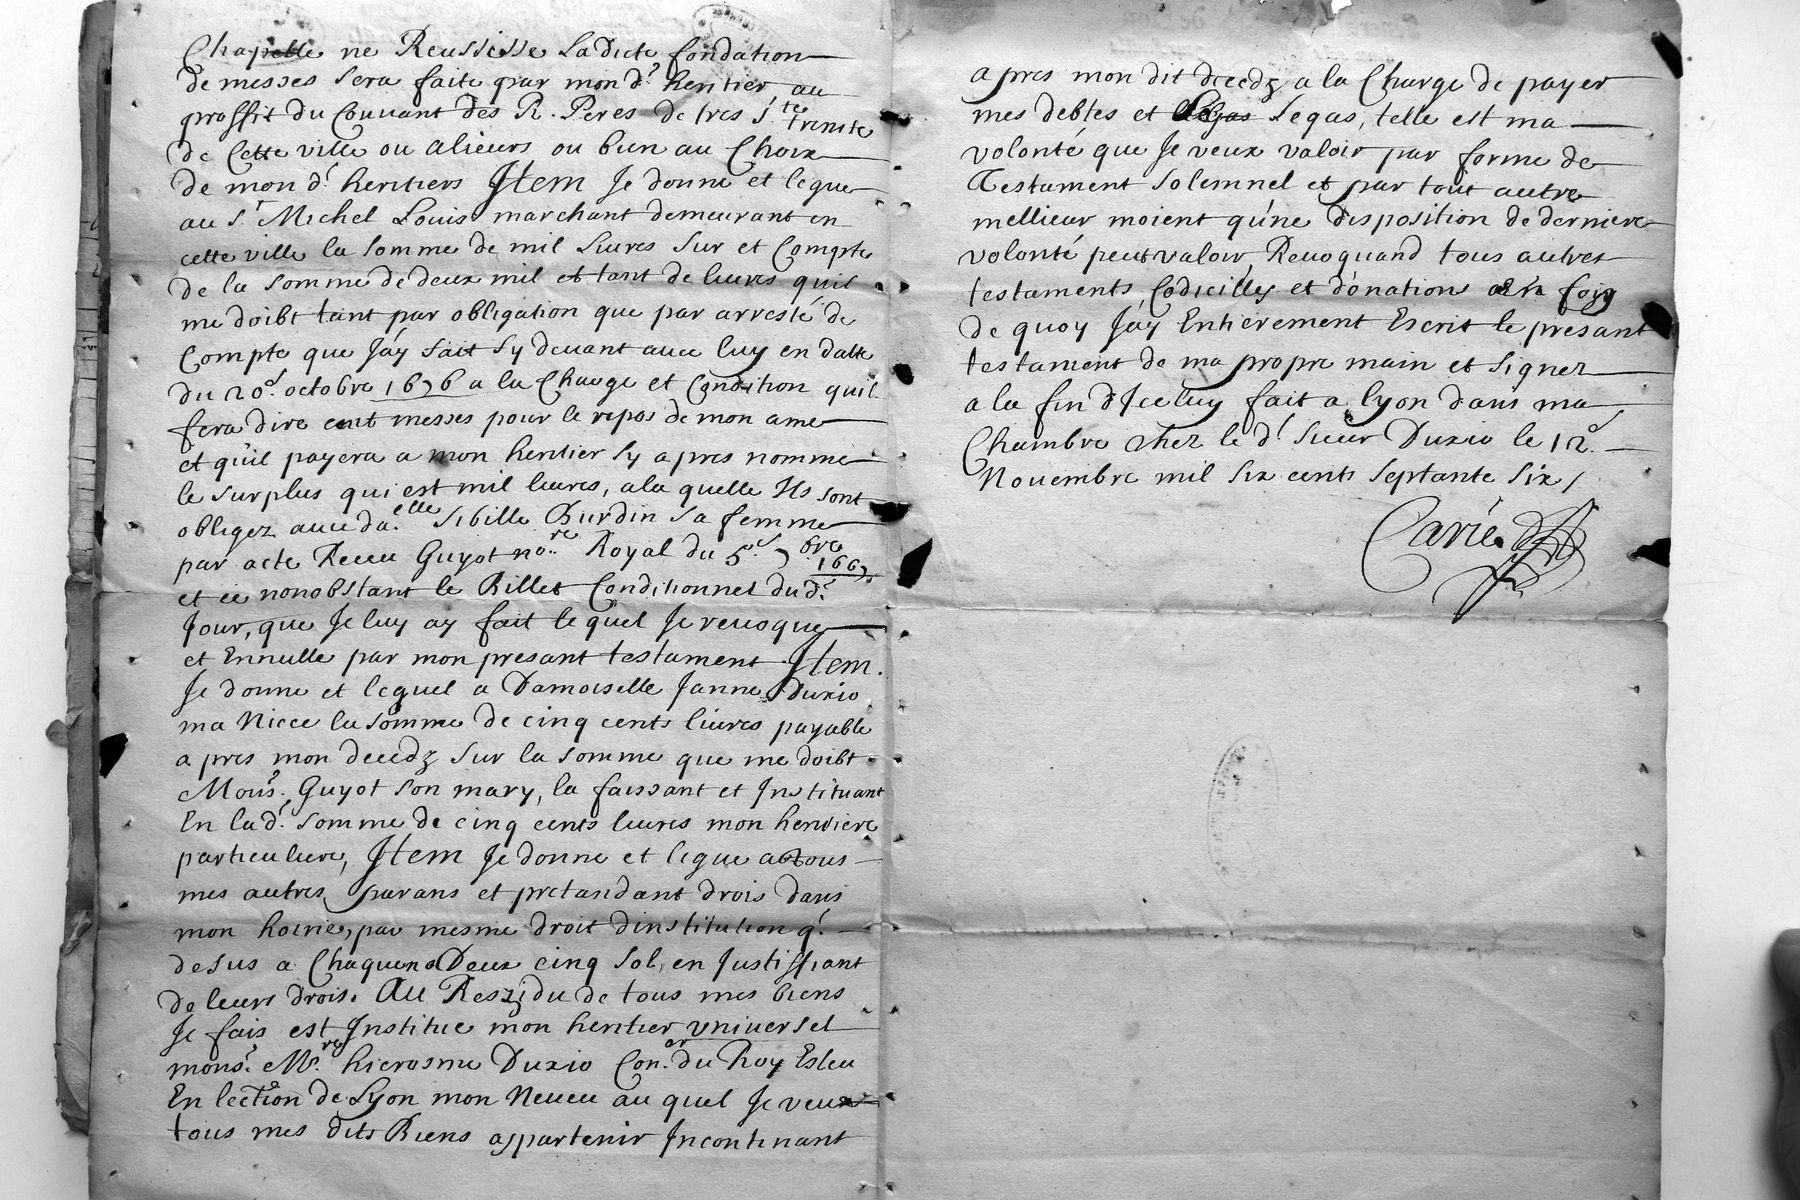 Chapelle ne Reussisse Ladicte fondation
de messes sera faite par mon d.^t heritier, au
proffit du Couuant des R. Peres de tres S.^te trinité
de Cette ville ou alieurs ou bien au Choix
de mon d.^t heritiers Jtem Je donne et legue
au S.^r Michel Louis marchant demeurant en
cette ville la somme de mil liures sur et Compte
de la somme de deux mil et tant de liures quil
me doibt tant par obligation que par arresté de
Compte que J'ay fait sy deuant auec luy en datte
du 20.^e octobre 1676 a la Charge et Condition quil
fera dire cent messes pour le repos de mon ame
et qu'il payera a mon heritier sy apres nommé
le surplus qui est mil liures, a la quelle Ils sont
obligez auec da.^elle Sibille Burdin sa femme
par acte Receu Guyot no.^re Royal du 5.^e 7^bre 1667.
et ce nonobstant le Billet Conditionnel du d.^t
Jour, que Je luy ay fait lequel Je reuoque
et Ennulle par mon presant testament Jtem.
Je donne et leguel a Damoiselle Janne Duxio
ma Niece la somme de cinq cents liures payable
apres mon decedz sur la somme que me doibt
Mons.^r Guyot son mary, la faissant et Jnstituant
En lad.^t somme de cinq cents liures mon heritiere
particuliere, Jtem Je donne et legue a tous
mes autres parans et pretandant drois dans
mon hoirie, par mesme droit dinstitution q.^e
desus a Chaquen Deux cinq sol, en Justiffiant
de leurs drois. Au Reszidu de tous mes biens
Je fais est Jnstitue mon heritier vniuersel
mons.^r M.^re hierosme Duxio Con.^er du Roy Esleu
En lection de Lyon mon Neueu au quel Je veux
tous mes dits Biens appartenir Jncontinant
apres mon dit decedz a la Charge de payer
mes debtes et legas, telle est ma
volonté que Je veux valoir par forme de
Testament solemnel et par tout autre
mellieur moient qu'ne disposition de derniere
volonté peut valoir, Reuoquand tous autres
testaments, Codicilles et donation en foy
de quoy J'ay Entierement Escrit le presant
testament de ma propre main et signez
a la fin d'Iceluy fait a lyon dans ma
Chambre chez le d.^t sieur Duxio le 12.^e
Nouembre mil six cents septante six /
Carié